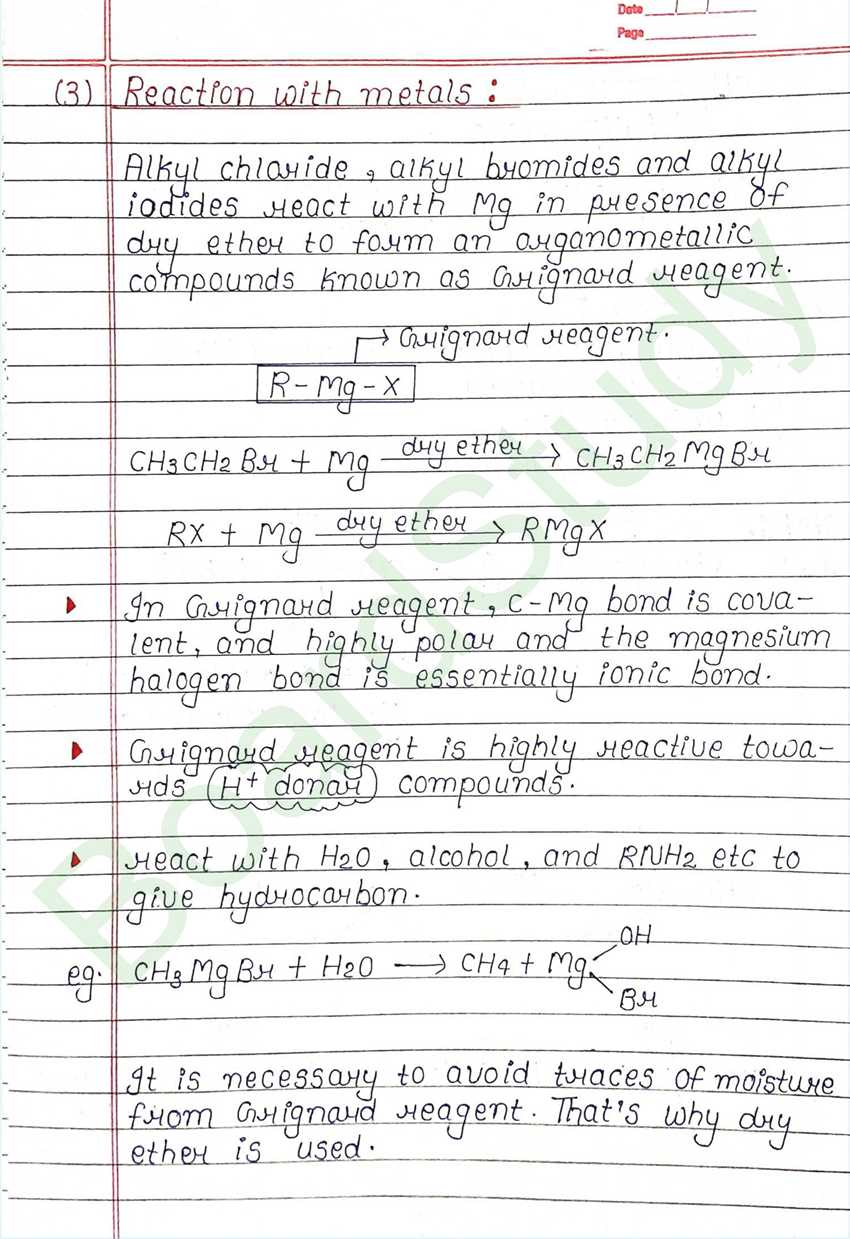 Date
Page
(3) Reaction with metals :
Alkyl chloride , alkyl bromides and alkyl
iodides react with Mg in presence of
dry ether to form an organometallic
compounds known as Grignard reagent.
→ Grignard reagent.
R - Mg - X
CH3CH2Br + Mg dry ether → CH3CH2MgBr
RX + Mg dry ether → RMgX
In Grignard reagent, C-Mg bond is cova-
lent, and highly polar and the magnesium
halogen bond is essentially ionic bond.
Grignard reagent is highly reactive towa-
rds H+ donar compounds.
react with H2O , alcohol , and RNH2 etc to
give hydrocarbon.
OH
eg. CH3MgBr + H2O → CH4 + Mg
Br
It is necessary to avoid traces of moisture
from Grignard reagent. That's why dry
ether is used.
BoardStudy